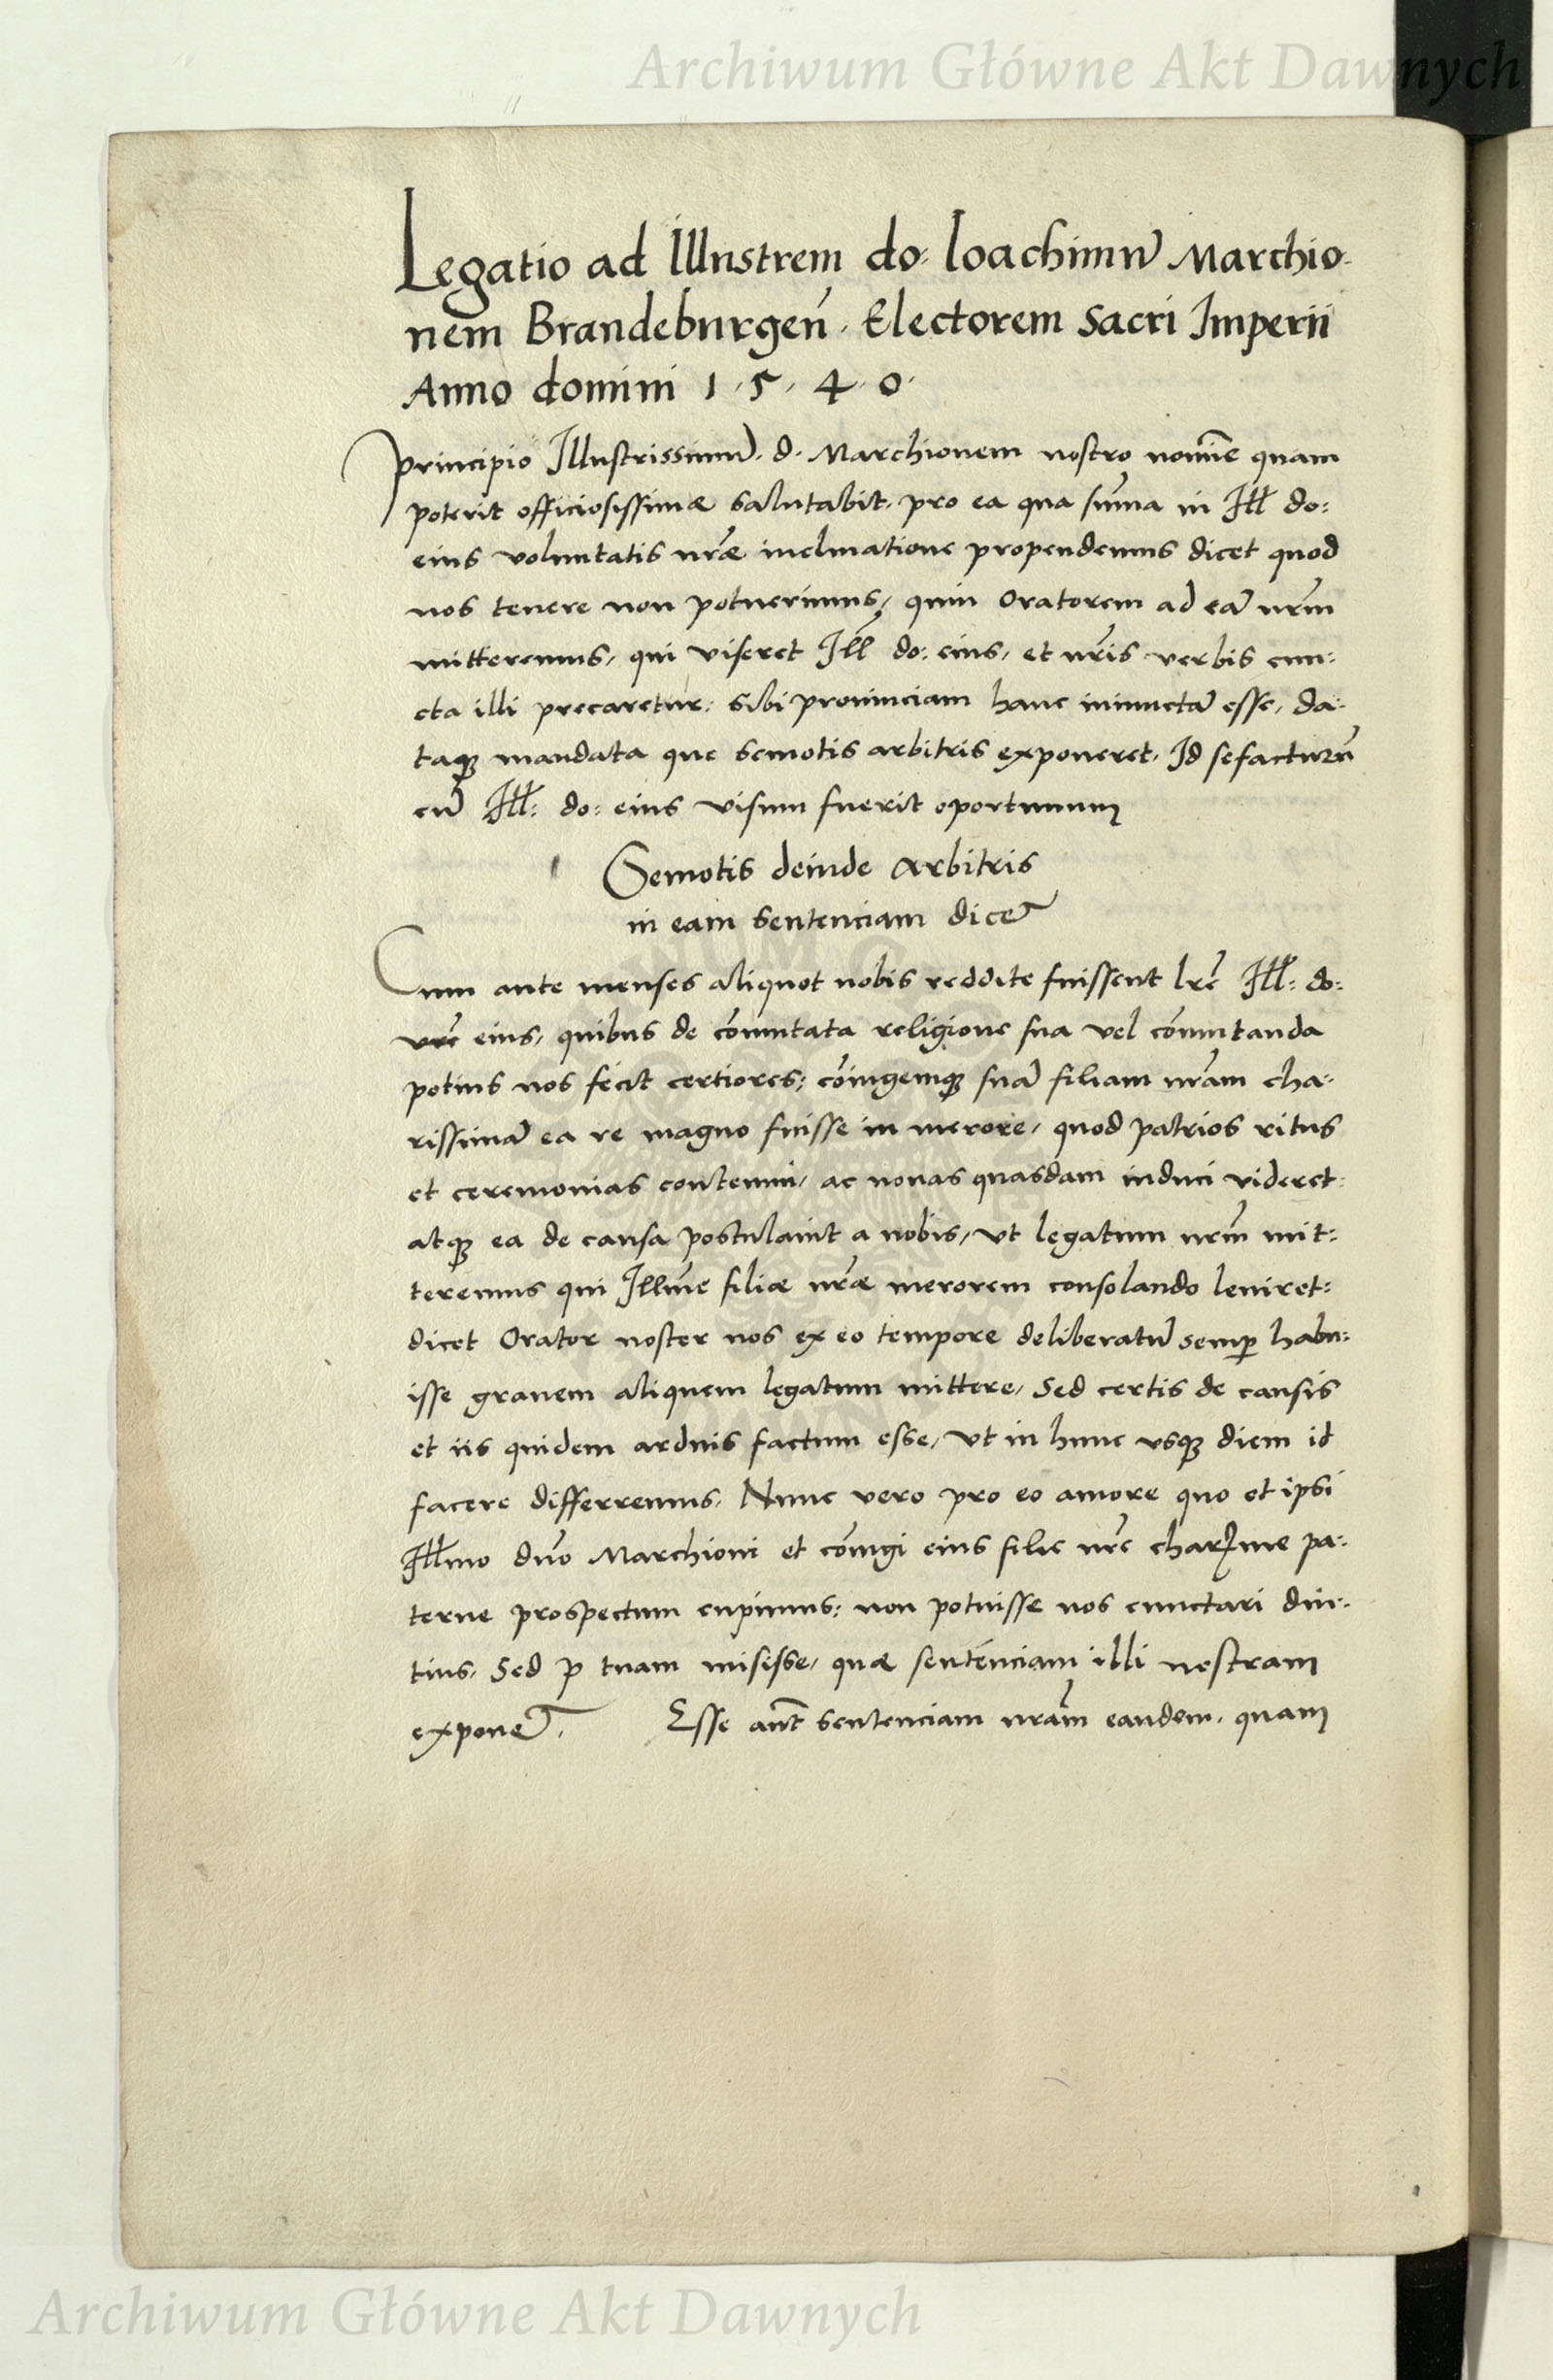 Archiwum Główne Akt Dawnych
Legatio ad Illustrem do: Ioachimu͂ Marchio-
nem Brandeburgen͂. Electorem Sacri Imperii
Anno domini 1·5·4·0·
Principio Illustrissimu͂. d. Marchionem nostro noĩne quam
poterit officiosissimæ salutabit, pro ea qua su͂ma in Ill do:
eius voluntatis nr͂æ inclinatione propendemus dicet quod
nos tenere non potuerimus, quin Oratorem ad ea͂ nr͂m
mitteremus, qui viseret Ill͂ do: eius, et nr͂is verbis cun:
cta illi precaretur: sibi prouinciam hanc iniuncta͂ esse, da:
taqꝫ mandata que semotis arbitris exponeret. Id se facturu͂
cu͂ Ill: do: eius visum fuerit oportunum
Semotis deinde arbitris
in eam sentenciam dicet
Cum ante menses aliquot nobis reddite fuissent lr͂e Ill: do:
vr͂e eius, quibus de co͂mutata religione sua vel co͂mutanda
potius nos fecit certiores; co͂iugemqꝫ sua͂ filiam nr͂am cha:
rissima͂ ea re magno fuisse in merore, quod patrios ritus
et ceremonias contemni, ac nouas quasdam induci videret:
atqꝫ ea de causa postulauit a nobis, vt legatum nr͂m mit:
teremus qui Illm͂e filiæ nr͂æ merorem consolando leniret:
dicet Orator noster nos ex eo tempore deliberatu͂ semꝑ habu:
isse grauem aliquem legatum mittere, Sed certis de causis
et iis quidem arduis factum esse, vt in hunc vsqꝫ diem id
facere differremus. Nunc vero pro eo amore quo et ipsi
Illmo dn͂o Marchioni et co͂iugi eius filie nr͂e charṝme pa:
terne prospectum cupimus: non potuisse nos cunctari diu:
tius, Sed ꝑ tuam misesse, quæ sentenciam illi nostram
exponet. Esse aut͂ sentenciam nr͂am eandem, quam
Archiwum Główne Akt Dawnych